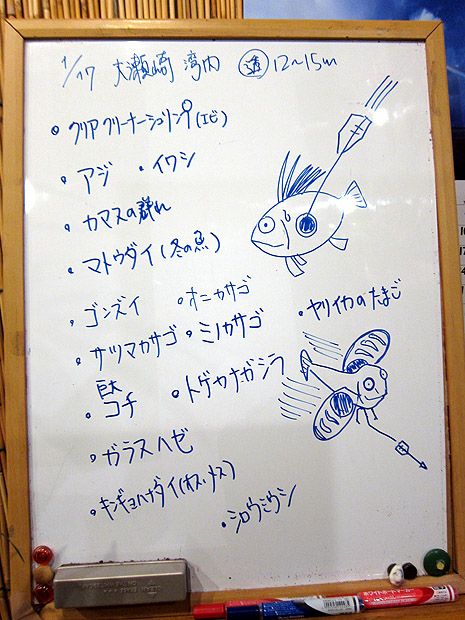 1/17 大瀬崎 湾内 透 12~15m
・クリアクリーナーシュリンプ(エビ)
・アジ ・イワシ
・カマスの群れ
・マトウダイ(冬の魚)
・ゴンズイ ・オニカサゴ
・サツマカサゴ ・ミノカサゴ ・ヤリイカのたまご
・巨大コチ ・トゲカナガシラ
・ガラスハゼ
・キンギョハナダイ(オス,メス)
・シロウミウシ